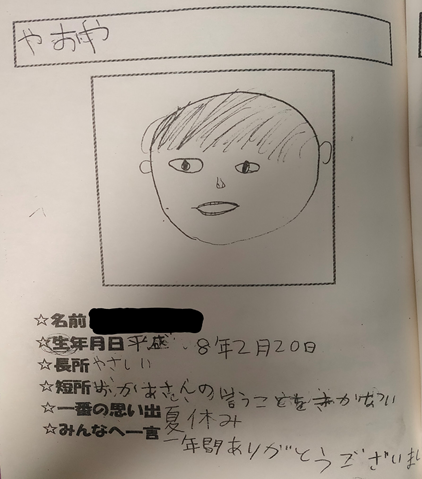 やおや
☆名前
☆生年月日 平成 8年2月20日
☆長所 やさしい
☆短所 おかあさんの言うことをきかない
☆一番の思い出 夏休み
☆みんなへ一言 一年間ありがとうございま